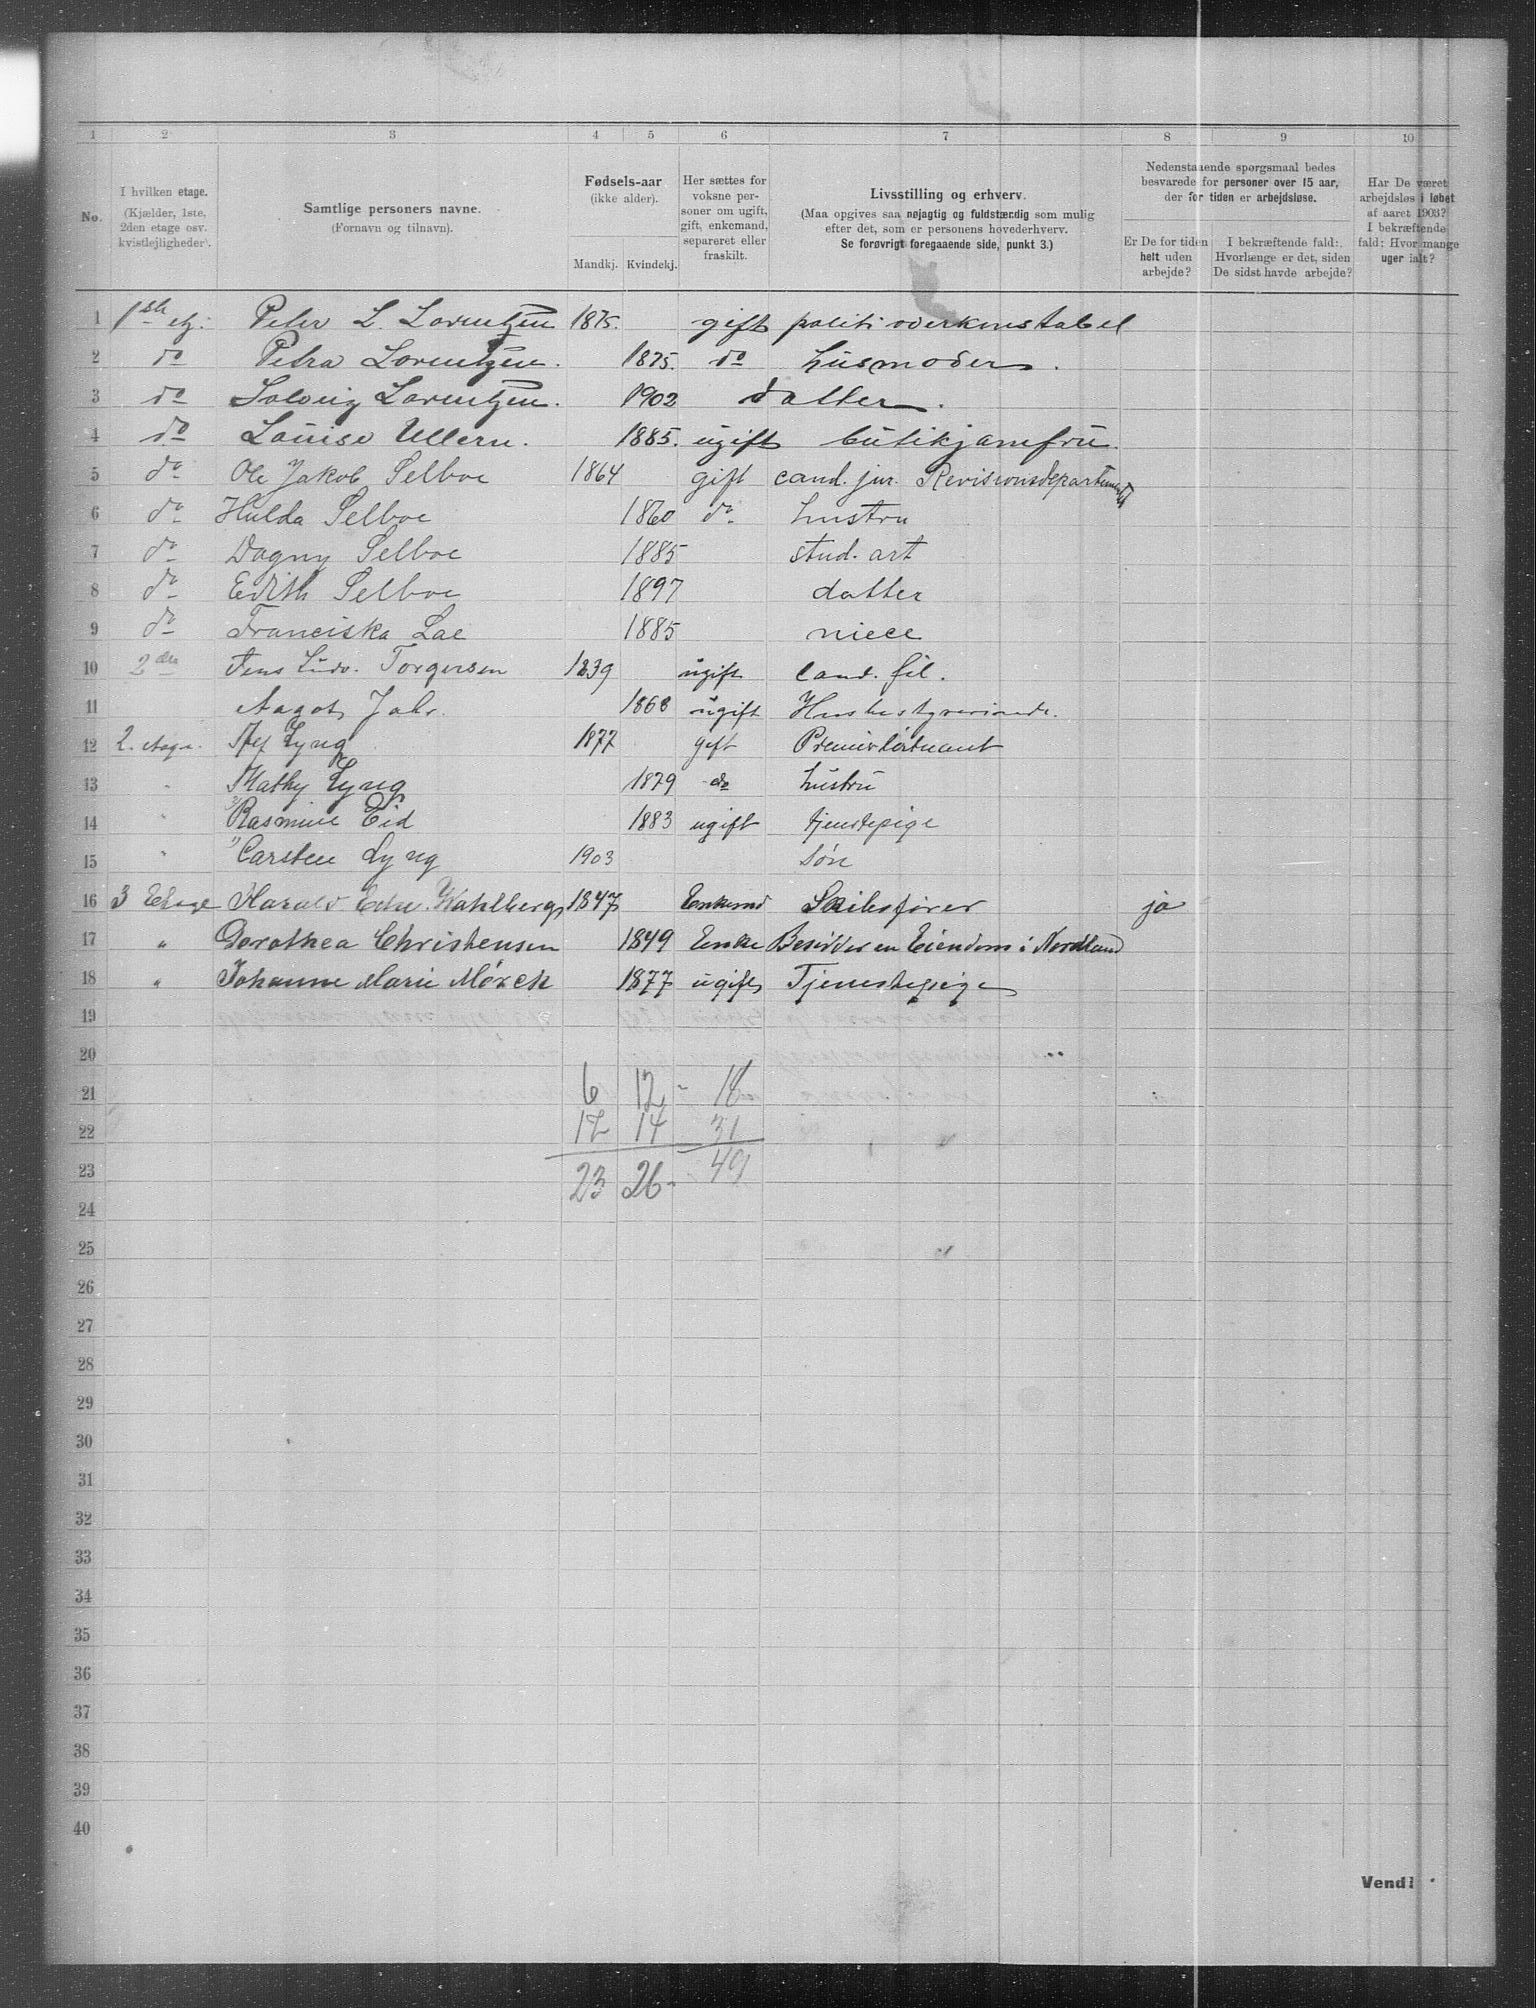 1 2 3 4 5 6 7 8 9 10
No.
I hvilken etage.
(Kjælder, 1ste,
2den etage osv.
kvistlejligheder).
Samtlige personers navne.
(Fornavn og tilnavn).
Fødsels-aar
(ikke alder).
Mandkj. Kvindekj.
Her sættes for
voksne per-
soner om ugift,
gift, enkemand,
separeret eller
fraskilt.
Livsstilling og erhverv.
(Maa opgives saa nøjagtig og fuldstændig som mulig
efter det, som er personens hovederhverv.
Se forøvrigt foregaaende side, punkt 3.)
Nedenstaaende spørgsmaal bedes
besvarede for personer over 15 aar,
der for tiden er arbejdsløse.
Er De for tiden
helt uden
arbejde?
I bekræftende fald:
Hvorlænge er det, siden
De sidst havde arbejde?
Har De været
arbejdsløs i løbet
af aaret 1903?
I bekræftende
fald: Hvor mange
uger ialt?
1 1ste etg. Peter L. Lorentzen 1875. gift politioverkonstabel
2 do Petra Lorentzen. 1875. do husmoder.
3 do Solveig Lorentzen. 1902 datter.
4 do Louise Ullern. 1885. ugift butikjomfru.
5 do Ole Jakob Selboe 1864 gift cand. jur. Revisionsdepartementet
6 do Hulda Selboe 1860 do hustru
7 do Dagny Selboe 1885 stud. art
8 do Edith Selboe 1897 datter
9 do Franciska Lae 1885 niece
10 2den Jens Ludv. Torgersen 1839 ugift cand. fil.
11 Aagot Jahr. 1868 ugift Husbestyrerinde.
12 2. Etage. Lyng 1877 gift Premierløitnant
13 " Mathy Lyng 1879 do hustru
14 " Rasmine Eid 1883 ugift tjenestepige
15 " Carsten Lyng 1903 søn
16 3 Etage Harald Wahlberg 1847 Enkemd Skibsfører ja
17 " Dorothea Christensen 1849 Enke Besidder en Eiendom i Nordland
18 " Johanne Marie Mörck 1877 ugift Tjenestepige
19
20
21 6 12 - 18
22 12 14 31
23 23 26 - 49
24
25
26
27
28
29
30
31
32
33
34
35
36
37
38
39
40
Vend!